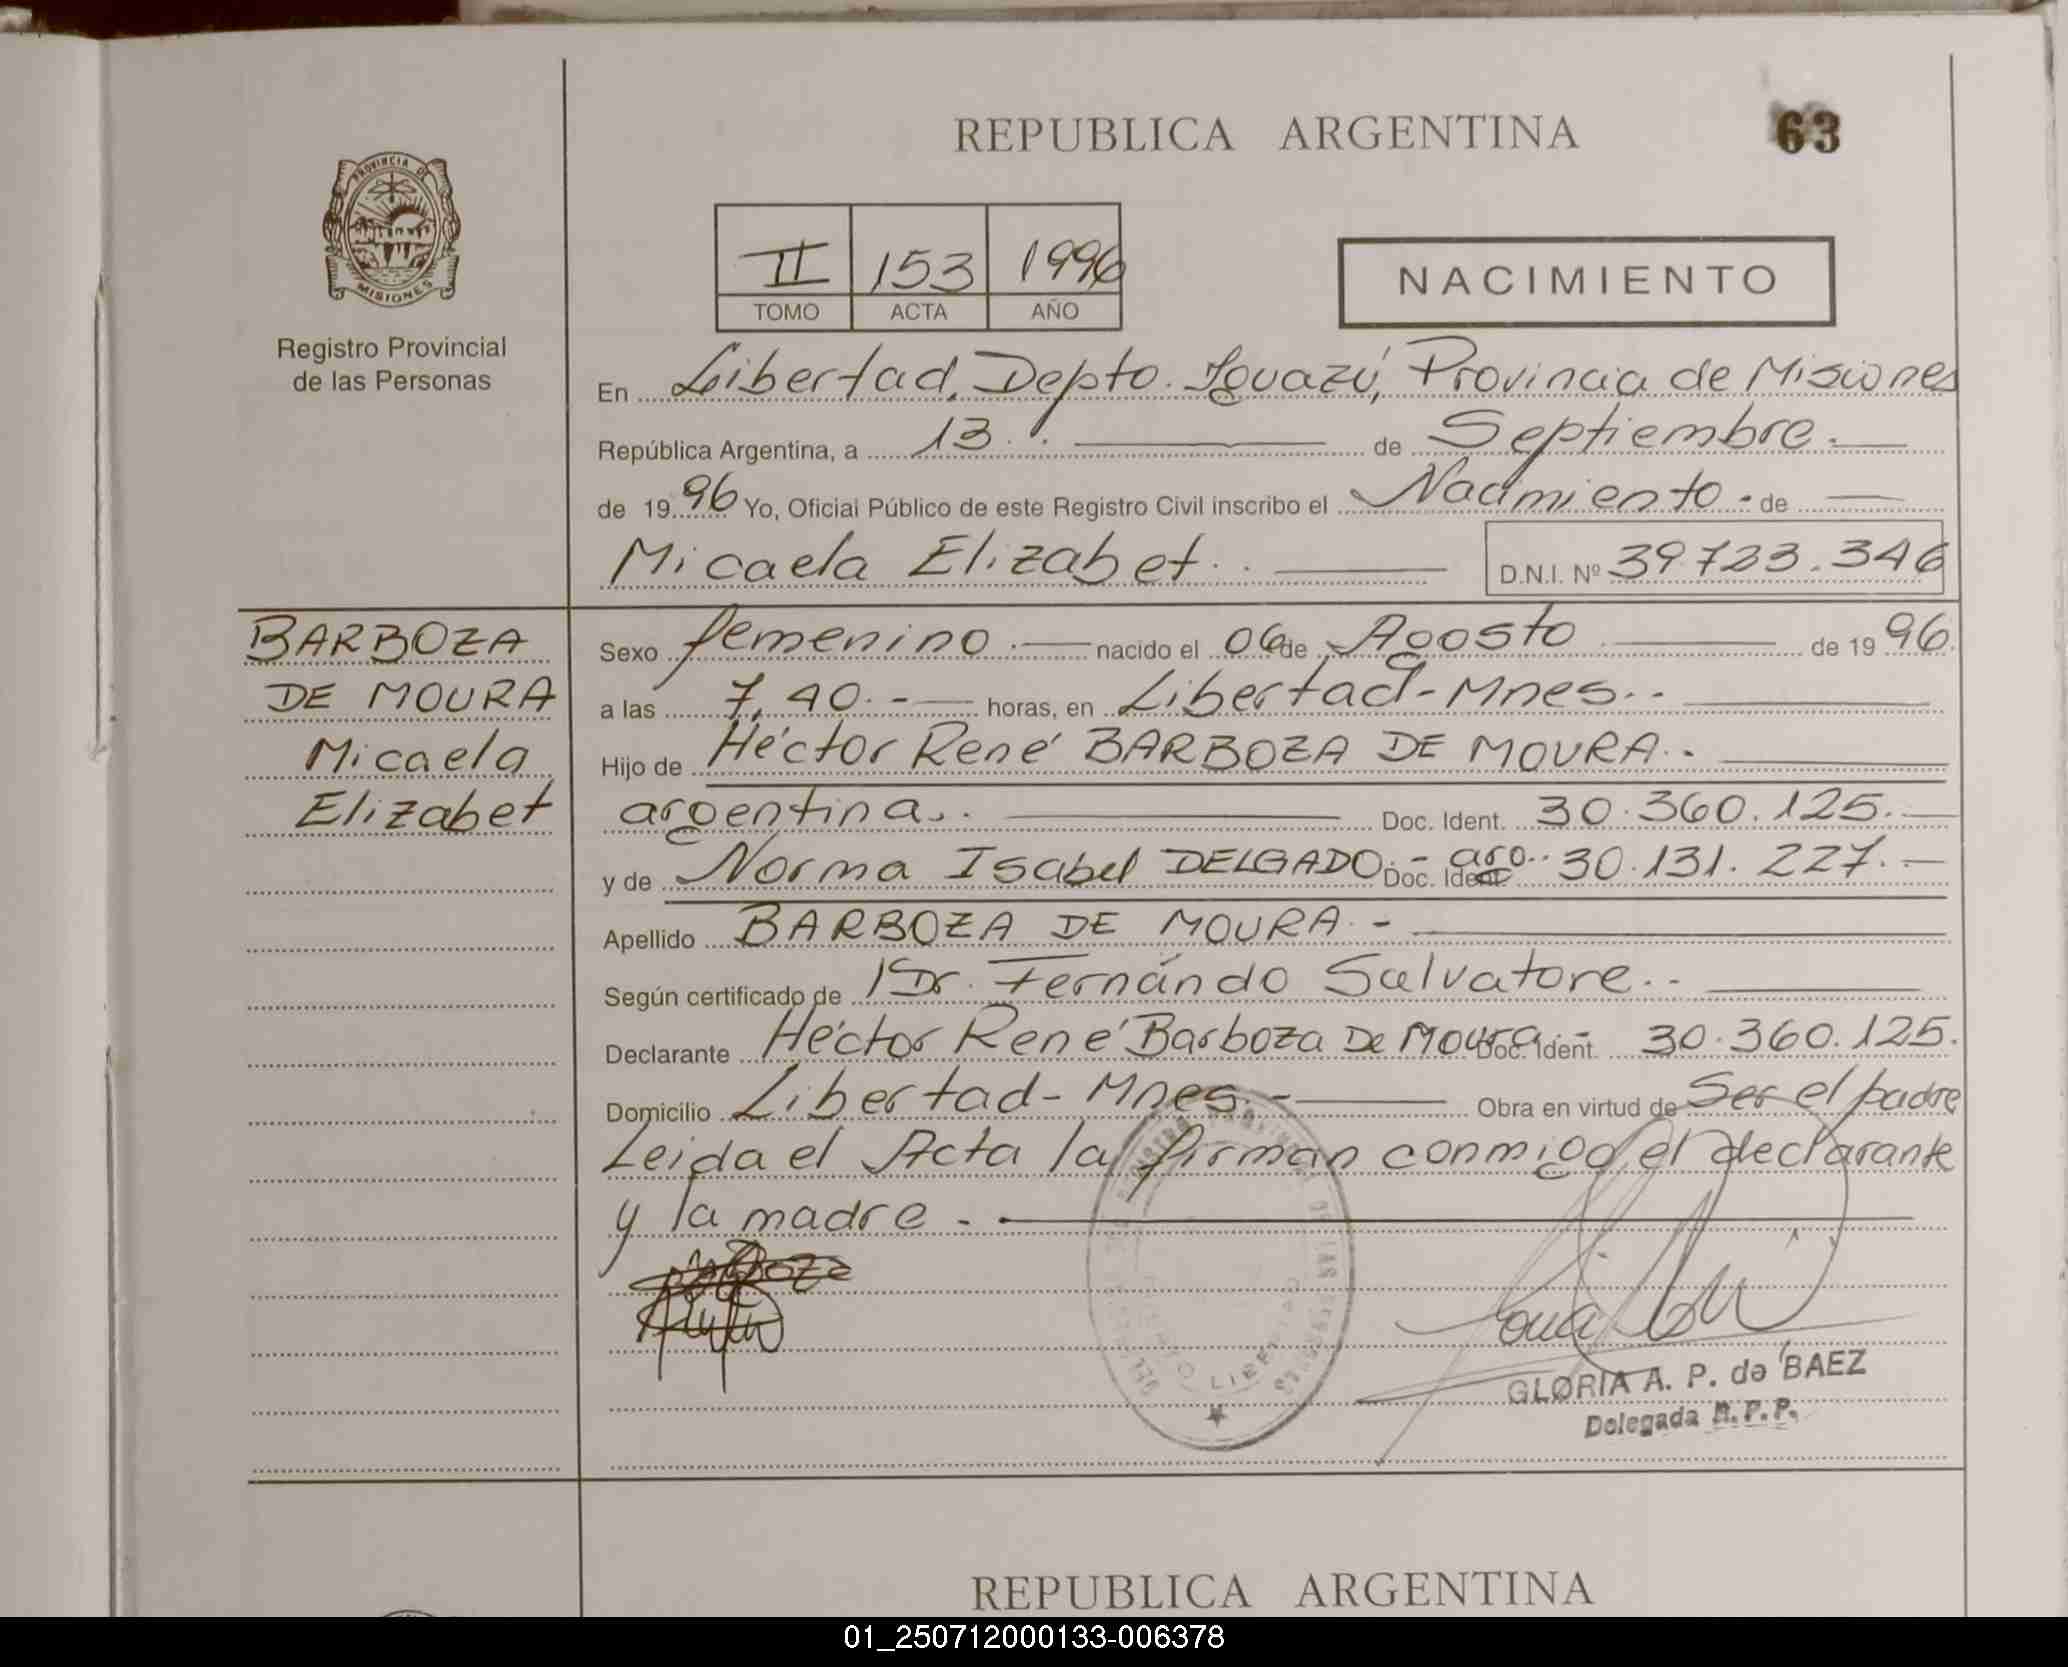 REPUBLICA ARGENTINA
63
PROVINCIA DE
MISIONES
Registro Provincial
de las Personas
II 153 1996
TOMO ACTA AÑO
NACIMIENTO
En Libertad, Depto. Iguazú, Provincia de Misiones
República Argentina, a 13. de Septiembre.
de 1996 Yo, Oficial Público de este Registro Civil inscribo el Nacimiento. de
Micaela Elizabet.
D.N.I. Nº 39.723.346
BARBOZA
DE MOURA
Micaela
Elizabet
Sexo femenino.- nacido el 06 de Agosto de 1996.
a las 7,40.- horas, en Libertad-Mnes..
Hijo de Héctor René BARBOZA DE MOURA.-
argentina.. Doc. Ident. 30.360.125.
y de Norma Isabel DELGADO.- arg.. Doc. Ident. 30.131.227.-
Apellido BARBOZA DE MOURA.-
Según certificado de Dr. Fernándo Salvatore..
Declarante Héctor René Barboza De Moura.- Doc. Ident. 30.360.125.
Domicilio Libertad-Mnes.- Obra en virtud de Ser el padre
Leida el Acta la firman conmigo el declarante
y la madre.-
GLORIA A. P. de BAEZ
Delegada R.P.P.
REPUBLICA ARGENTINA
01_250712000133-006378